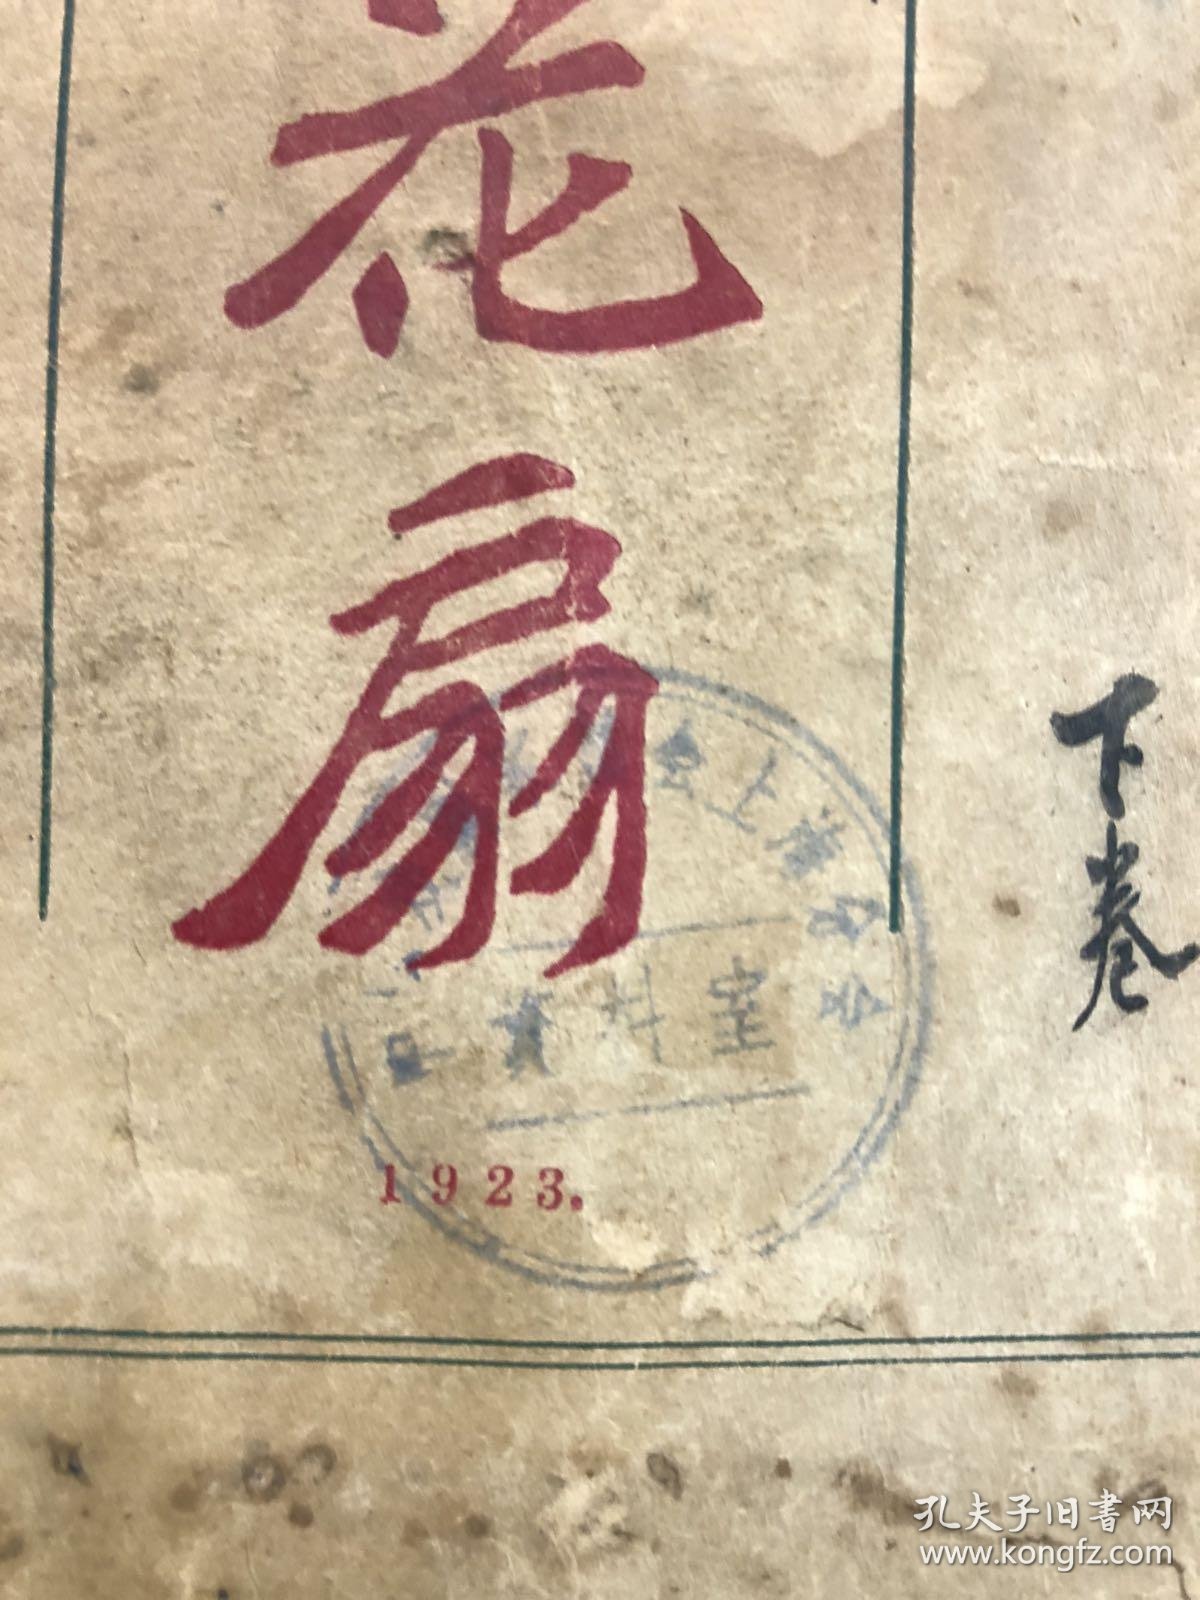 花扇
下卷
会上海分会
資料室
1923.
孔夫子旧書网
www.kongfz.com